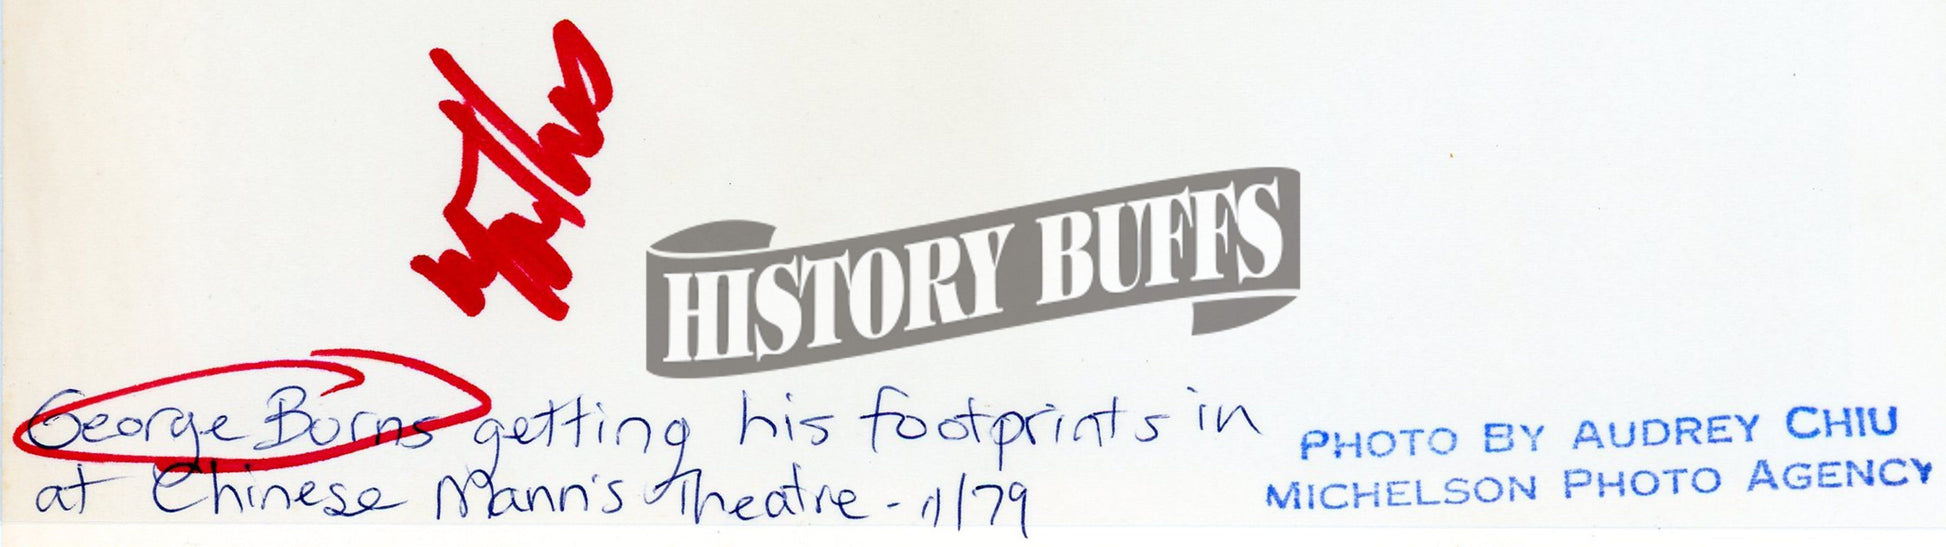 HISTORY BUFFS
George Burns getting his footprints in
at Chinese Mann's Theatre - 1/79
PHOTO BY AUDREY CHIU
MICHELSON PHOTO AGENCY